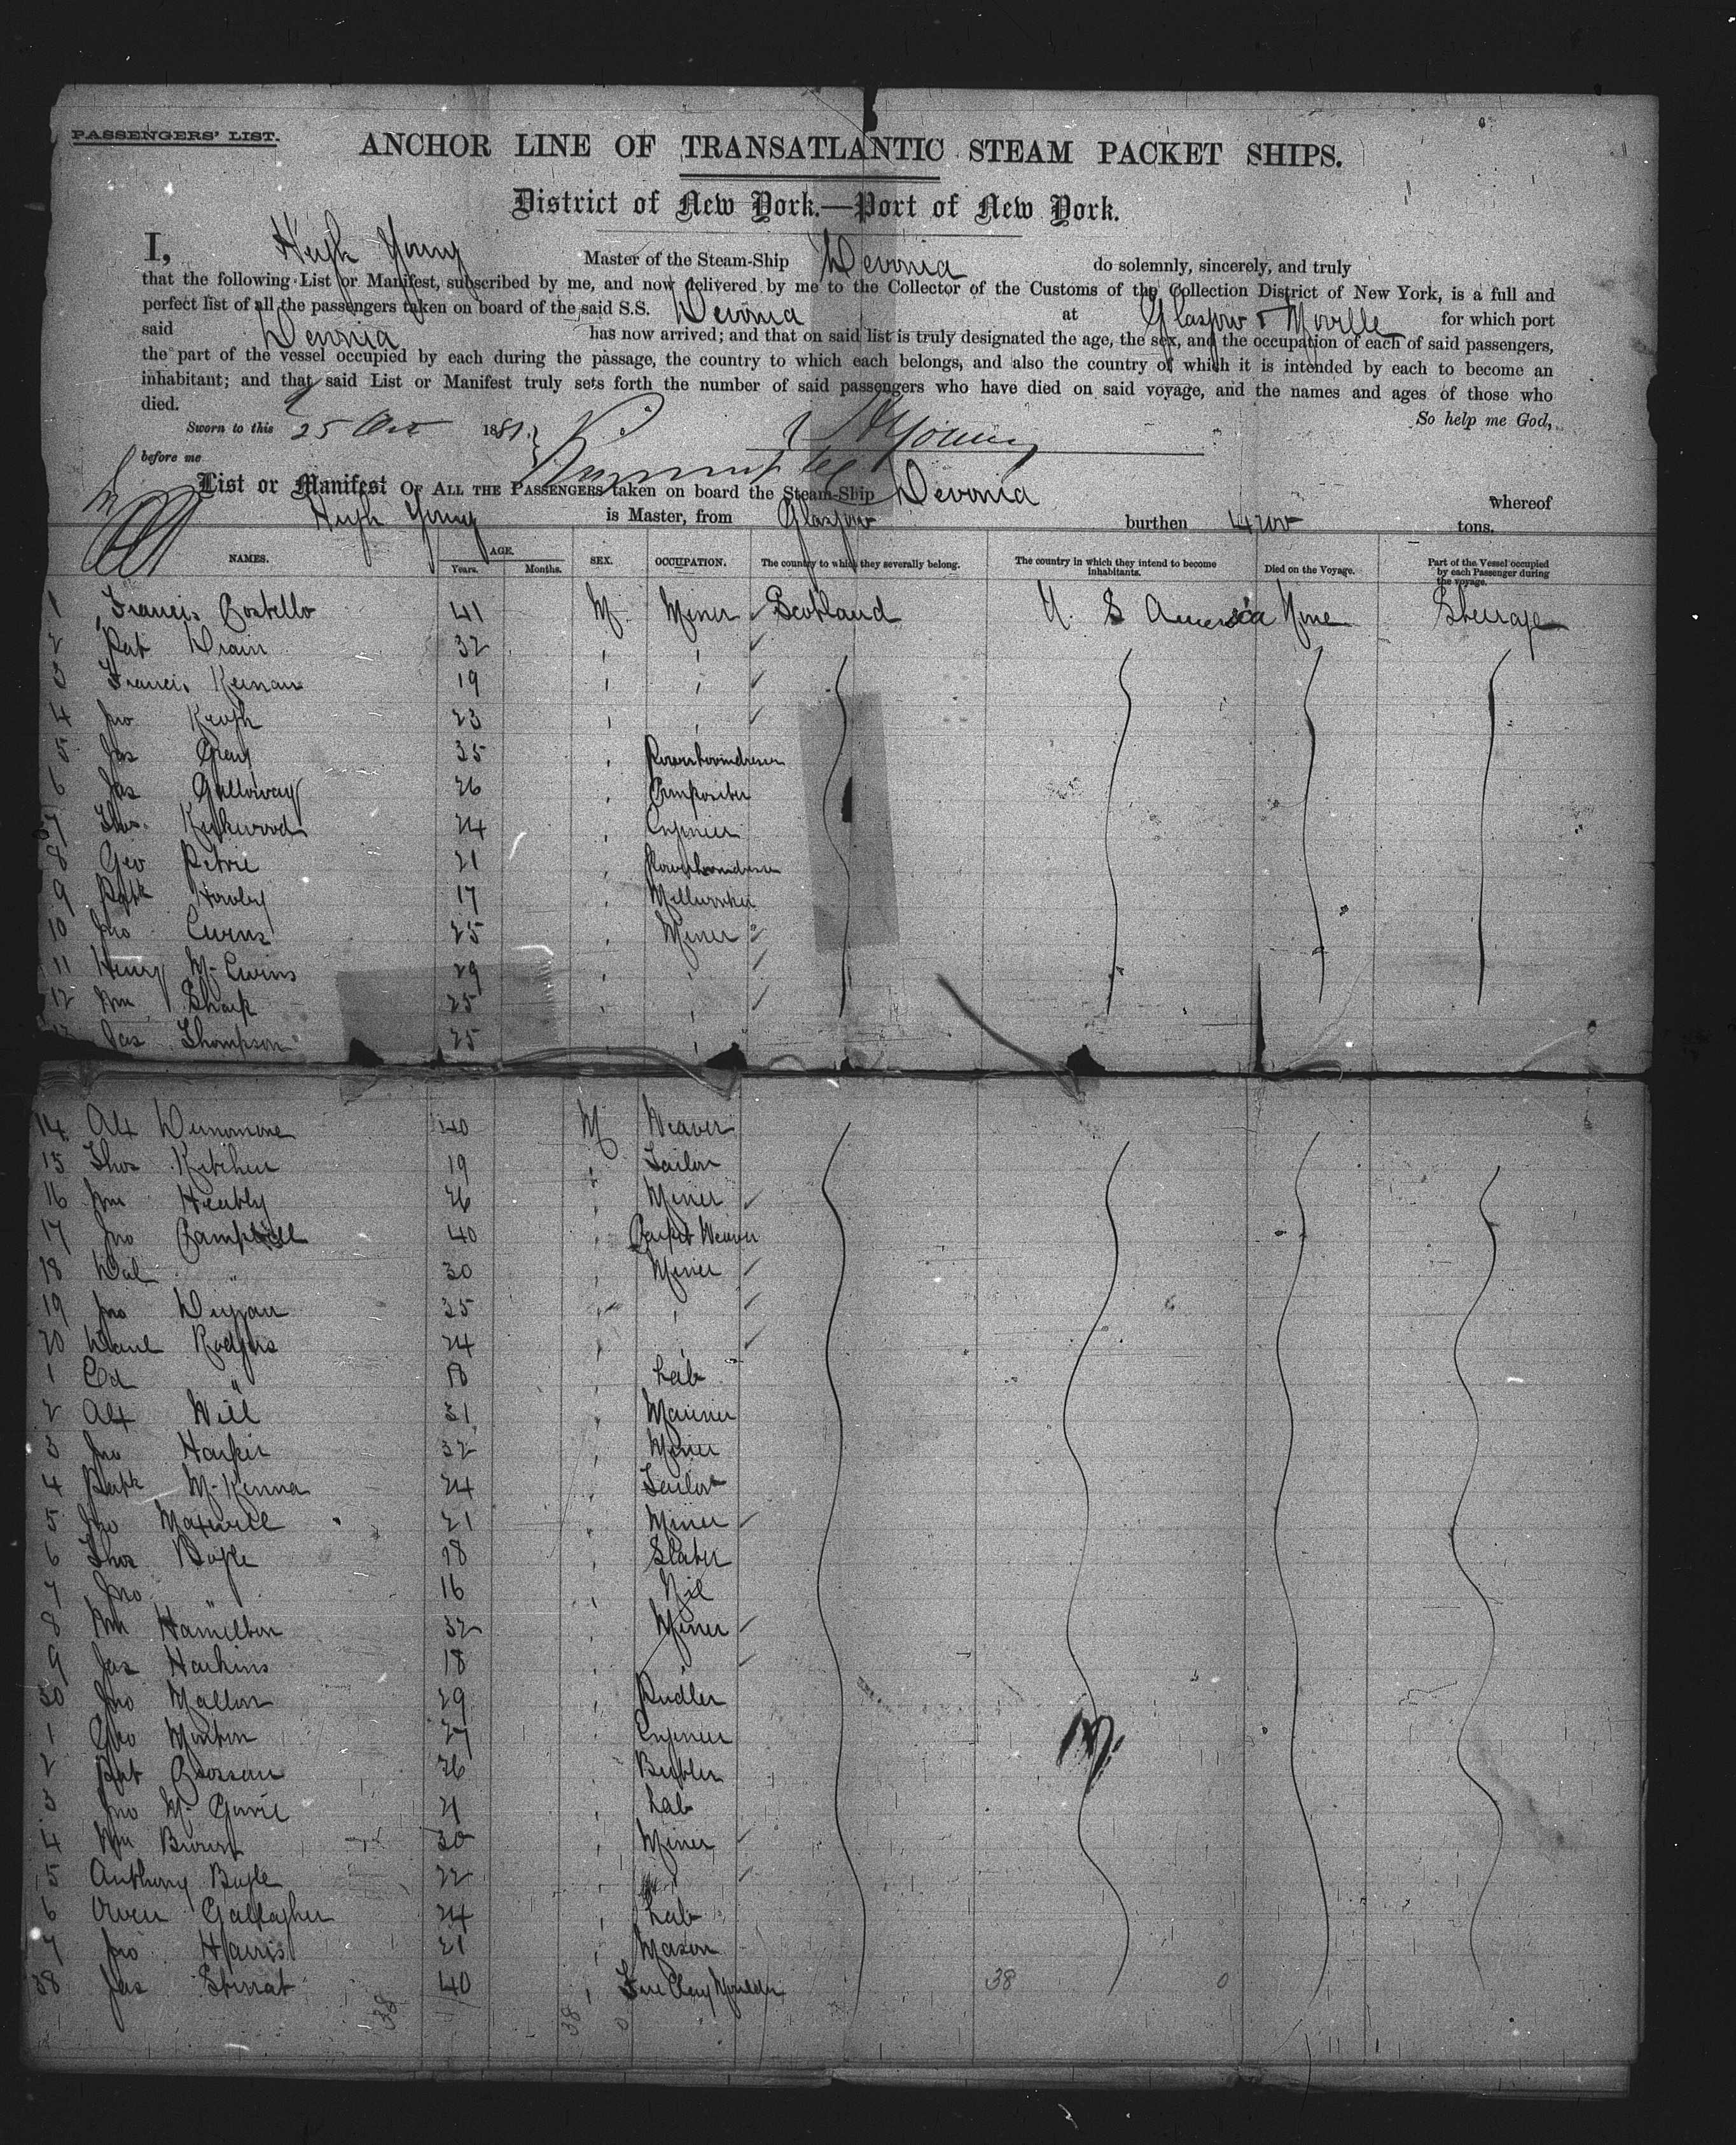 PASSENGERS' LIST.
ANCHOR LINE OF TRANSATLANTIC STEAM PACKET SHIPS.
District of New York.—Port of New York.
I, Hugh Young Master of the Steam-Ship Devonia do solemnly, sincerely, and truly
that the following List or Manifest, subscribed by me, and now delivered by me to the Collector of the Customs of the Collection District of New York, is a full and
perfect list of all the passengers taken on board of the said S.S. Devonia at Glasgow & Moville for which port
said Devonia has now arrived; and that on said list is truly designated the age, the sex, and the occupation of each of said passengers,
the part of the vessel occupied by each during the passage, the country to which each belongs, and also the country of which it is intended by each to become an
inhabitant; and that said List or Manifest truly sets forth the number of said passengers who have died on said voyage, and the names and ages of those who
died. So help me God,
Sworn to this 25 Oct 1881. HYoung
before me
List or Manifest OF ALL THE PASSENGERS taken on board the Steam-Ship Devonia whereof
Hugh Young is Master, from Glasgow burthen 4200 tons.
NAMES. AGE. Years. Months. SEX. OCCUPATION. The country to which they severally belong. The country in which they intend to become inhabitants. Died on the Voyage. Part of the Vessel occupied by each Passenger during the voyage.
1 Francis Costello 41 M Miner Scotland U. S America None Steerage
2 Pat Drain 32 " "
3 Francis Keenan 19 " "
4 Jno Keogh 23 " "
5 Jas Gray 35 "
6 Jas Galloway 26 " Compositor
7 Thos. Kirkwood 24 " Engineer
8 Geo Petrie 21 "
9 Patk Hawley 17 " Millworker
10 Jno Ewins 25 " Miner
11 Henry Mc Ewins 29 " "
12 Wm Sharp 25 " "
13 Jas Thompson 25 "
14 Alx Densmore 40 M Weaver
15 Thos Kitchen 19 " Tailor
16 Wm Heably 26 " Miner
17 Jno Campbell 40 " Carpet Weaver
18 Wal " 30 " Miner
19 Jno Duggan 35 " "
20 Danl Rodgers 24 " "
1 Ed " 18 " Lab
2 Alx Will 31 " Mariner
3 Jno Harper 32 " Miner
4 Patk Mc Kenna 24 " Tailor
5 Jno Maxwell 21 " Miner
6 Thos Boyle 18 " Slater
7 Jno " 16 " Nil
8 Wm Hamilton 32 " Miner
9 Jas Harkins 18 " "
30 Jno Mallon 29 " Pudler
1 Geo Morton 27 " Engineer
2 Pat Crossan 26 " Butler
3 Jno Mc Garvie 21 " Lab
4 Wm Brown 30 " Miner
5 Anthony Boyle 22 "
6 Owen Gallagher 24 " Lab
7 Jno Harris 21 " Mason
38 Jas Stirrat 40 " Fire Clay Moulder 38 0
38 38 0